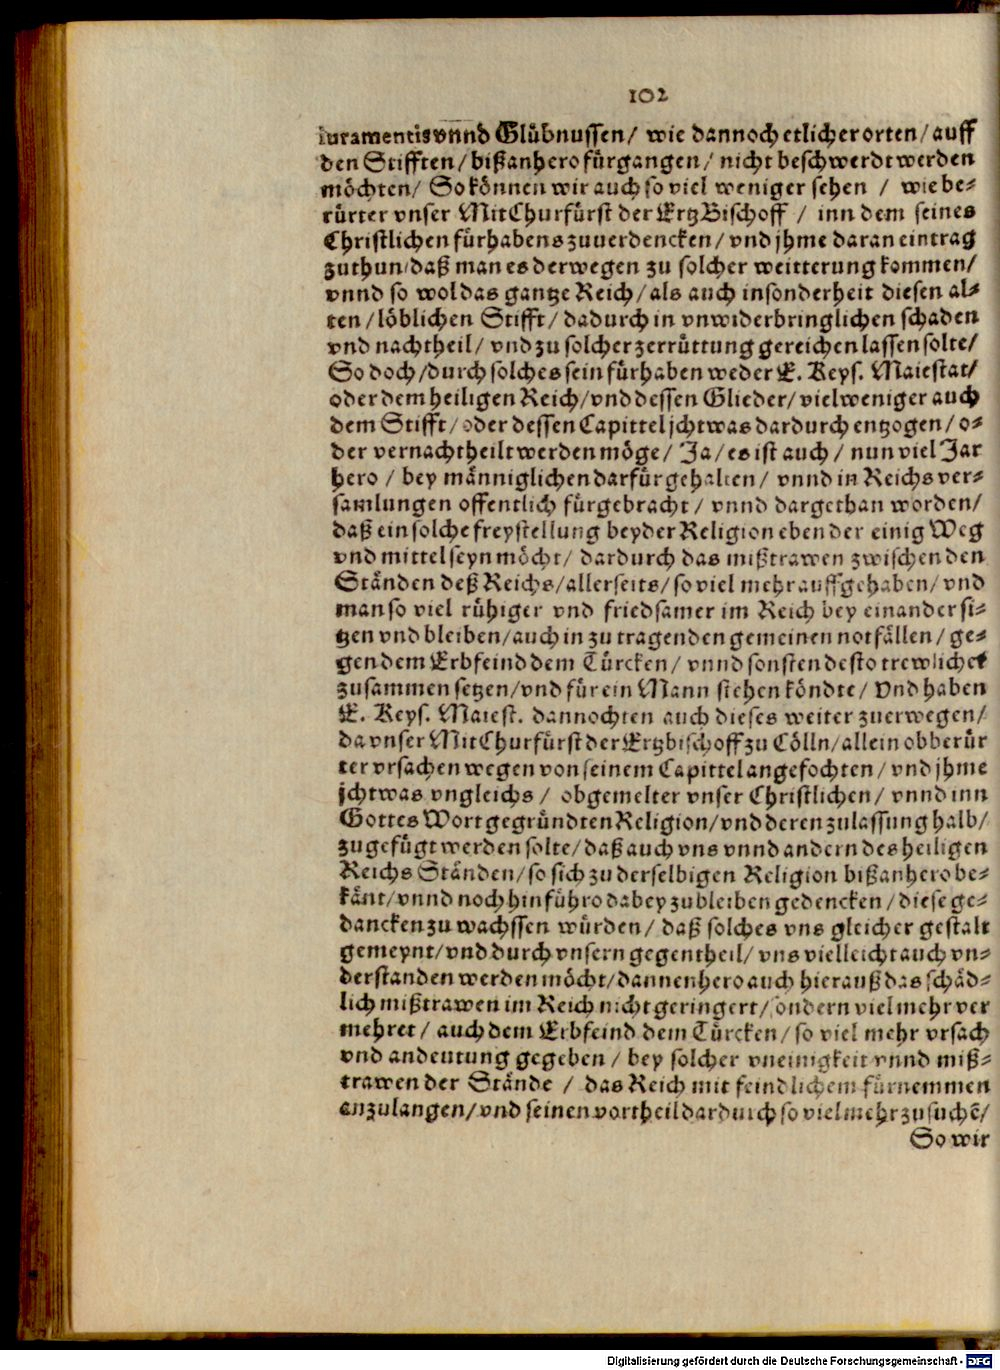 102
iuramentis vnnd Glübnussen/ wie dannoch etlicher orten/ auff
den Stifften/ bißanhero fürgangen/ nicht beschwerdt werden
möchten/ So können wir auch so viel weniger sehen / wie be-
rürter vnser MitChurfürst der ErtzBischoff / inn dem seines
Christlichen fürhabens zuuerdencken/ vnd jhme daran eintrag
zuthun/ daß man es derwegen zu solcher weitterung kommen/
vnnd so wol das gantze Reich/ als auch insonderheit diesen al-
ten/ löblichen Stifft/ dadurch in vnwiderbringlichen schaden
vnd nachtheil/ vnd zu solcher zerrüttung gereichen lassen solte/
So doch/ durch solches sein fürhaben weder E. Keys. Maiestat/
oder dem heiligen Reich/ vnd dessen Glieder/ viel weniger auch
dem Stifft/ oder dessen Capittel jchtwas dardurch entzogen/ o-
der vernachtheilt werden möge/ Ja/ es ist auch/ nun viel Jar
hero / bey männiglichen darfür gehalten/ vnnd in Reichs ver-
samlungen offentlich fürgebracht/ vnnd dargethan worden/
daß ein solche freystellung beyder Religion eben der einig Weg
vnd mittel seyn möcht/ dardurch das mißtrawen zwischen den
Ständen deß Reichs/ allerseits/ so viel mehr auffgehaben/ vnd
man so viel rühiger vnd friedsamer im Reich bey einander si-
tzen vnd bleiben/ auch in zu tragenden gemeinen notfällen/ ge-
gen dem Erbfeind dem Türcken/ vnnd sonsten desto trewlicher
zusammen setzen/ vnd für ein Mann stehen köndte/ Vnd haben
E. Keys. Maiest. dannochten auch dieses weiter zuerwegen/
da vnser MitChurfürst der Ertzbischoff zu Cölln/ allein obberür
ter vrsachen wegen von seinem Capittel angefochten/ vnd jhme
jchtwas vngleichs / obgemelter vnser Christlichen/ vnnd inn
Gottes Wort gegründten Religion/ vnd deren zulassung halb/
zugefügt werden solte/ daß auch vns vnnd andern des heiligen
Reichs Ständen/ so sich zu derselbigen Religion bißanhero be-
känt/ vnnd noch hinführo dabey zubleiben gedencken/ diese ge-
dancken zu wachssen würden/ daß solches vns gleicher gestalt
gemeynt/ vnd durch vnsern gegentheil/ vns vielleicht auch vn-
derstanden werden möcht/ dannenhero auch hierauß das schäd-
lich mißtrawen im Reich nicht geringert/ sondern vielmehr ver
mehret/ auch dem Erbfeind dem Türcken/ so viel mehr vrsach
vnd andeutung gegeben / bey solcher vneinigkeit vnnd miß-
trawen der Stände / das Reich mit feindlichem fürnemmen
anzulangen/ vnd seinen vortheil dardurch so viel mehr zu suchẽ/
So wir
Digitalisierung gefördert durch die Deutsche Forschungsgemeinschaft - DFG